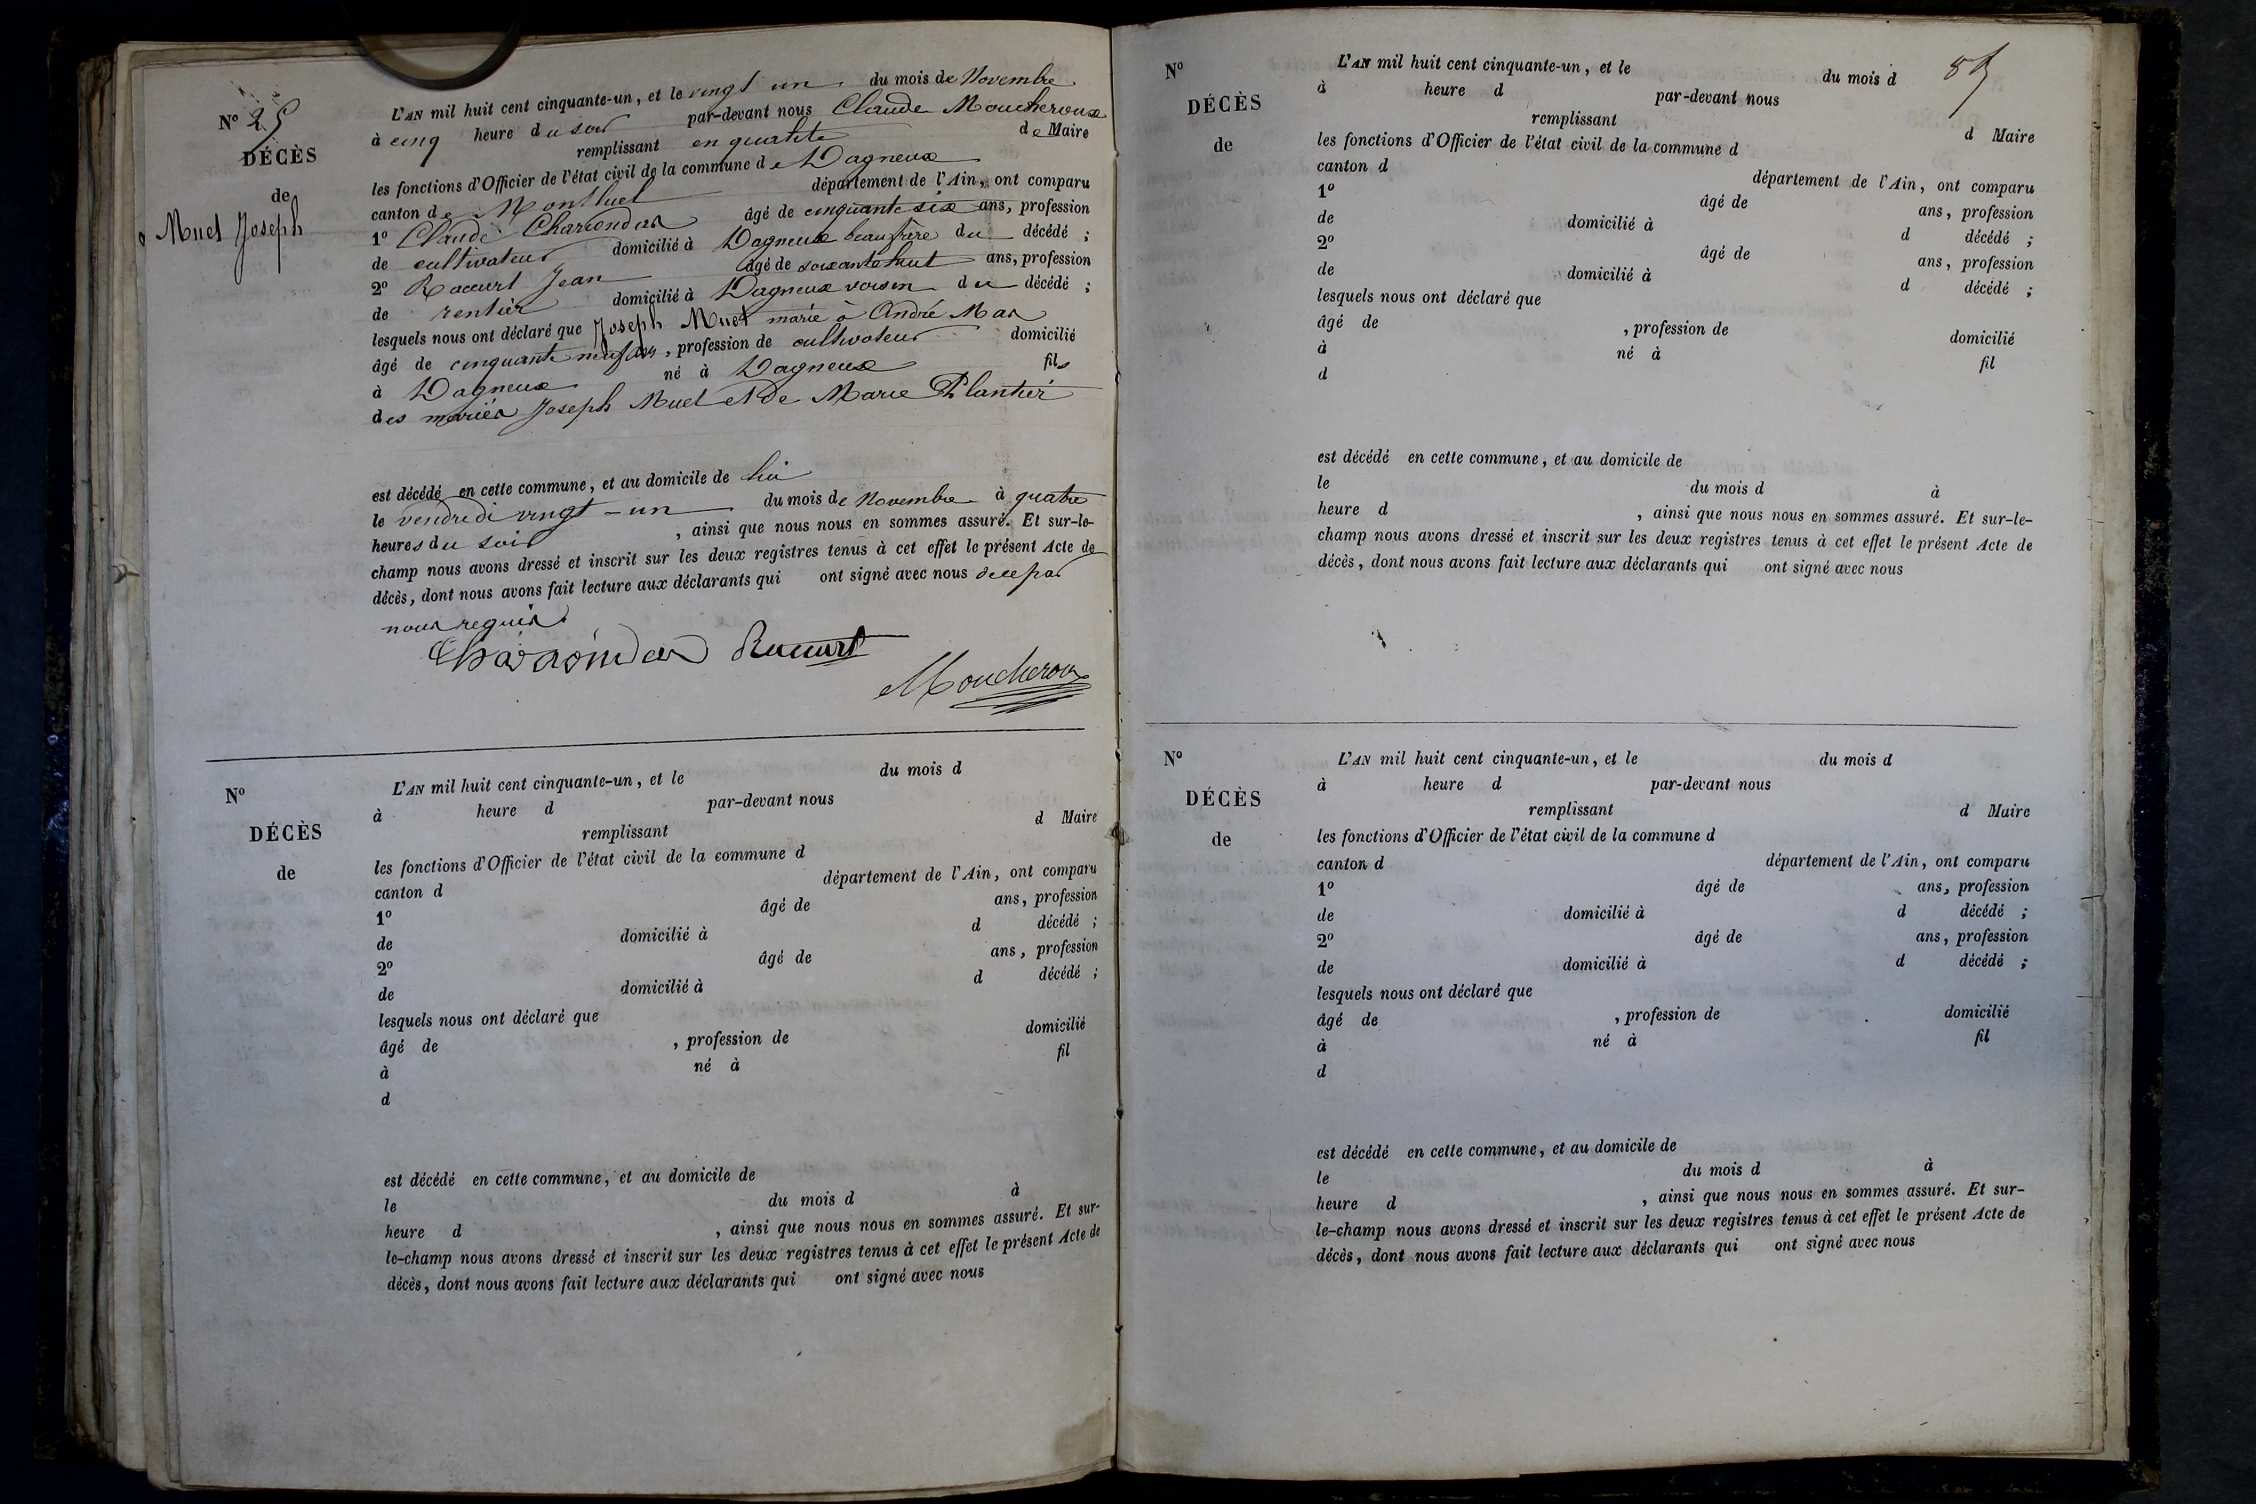 N° 25
DÉCÈS
de
Muet Joseph
L'AN mil huit cent cinquante-un, et le vingt un du mois de Novembre
à cinq heure du soir par-devant nous Claude Moucheroux
remplissant en qualité de Maire
les fonctions d'Officier de l'état civil de la commune de Dagneux
canton de Montluel département de l'Ain, ont comparu
1° Claude âgé de cinquante six ans, profession
de cultivateur domicilié à Dagneux beau frère du décédé ;
2° Jean âgé de soixante huit ans, profession
de rentier domicilié à Dagneux voisin du décédé ;
lesquels nous ont déclaré que Joseph Muet marié à André
âgé de cinquante neuf ans, profession de cultivateur domicilié
à Dagneux né à Dagneux fils
des mariés Joseph Muet et de Marie Plantier
est décédé en cette commune, et au domicile de lui
le vendredi vingt-un du mois de Novembre à quatre
heures du soir, ainsi que nous nous en sommes assuré. Et sur-le-
champ nous avons dressé et inscrit sur les deux registres tenus à cet effet le présent Acte de
décès, dont nous avons fait lecture aux déclarants qui ont signé avec nous de ce par
nous requis.
Moucheroux
N°
DÉCÈS
de
L'AN mil huit cent cinquante-un, et le du mois d
à heure d par-devant nous
remplissant d Maire
les fonctions d'Officier de l'état civil de la commune d
canton d département de l'Ain, ont comparu
1° âgé de ans, profession
de domicilié à d décédé ;
2° âgé de ans, profession
de domicilié à d décédé ;
lesquels nous ont déclaré que
âgé de , profession de domicilié
à né à fil
d
est décédé en cette commune, et au domicile de
le du mois d à
heure d , ainsi que nous nous en sommes assuré. Et sur-
le-champ nous avons dressé et inscrit sur les deux registres tenus à cet effet le présent Acte de
décès, dont nous avons fait lecture aux déclarants qui ont signé avec nous
N°
DÉCÈS
de
L'AN mil huit cent cinquante-un, et le du mois d
à heure d par-devant nous
remplissant d Maire
les fonctions d'Officier de l'état civil de la commune d
canton d département de l'Ain, ont comparu
1° âgé de ans, profession
de domicilié à d décédé ;
2° âgé de ans, profession
de domicilié à d décédé ;
lesquels nous ont déclaré que
âgé de , profession de domicilié
à né à fil
d
est décédé en cette commune, et au domicile de
le du mois d à
heure d , ainsi que nous nous en sommes assuré. Et sur-le-
champ nous avons dressé et inscrit sur les deux registres tenus à cet effet le présent Acte de
décès, dont nous avons fait lecture aux déclarants qui ont signé avec nous
N°
DÉCÈS
de
L'AN mil huit cent cinquante-un, et le du mois d
à heure d par-devant nous
remplissant d Maire
les fonctions d'Officier de l'état civil de la commune d
canton d département de l'Ain, ont comparu
1° âgé de ans, profession
de domicilié à d décédé ;
2° âgé de ans, profession
de domicilié à d décédé ;
lesquels nous ont déclaré que
âgé de , profession de domicilié
à né à fil
d
est décédé en cette commune, et au domicile de
le du mois d à
heure d , ainsi que nous nous en sommes assuré. Et sur-
le-champ nous avons dressé et inscrit sur les deux registres tenus à cet effet le présent Acte de
décès, dont nous avons fait lecture aux déclarants qui ont signé avec nous